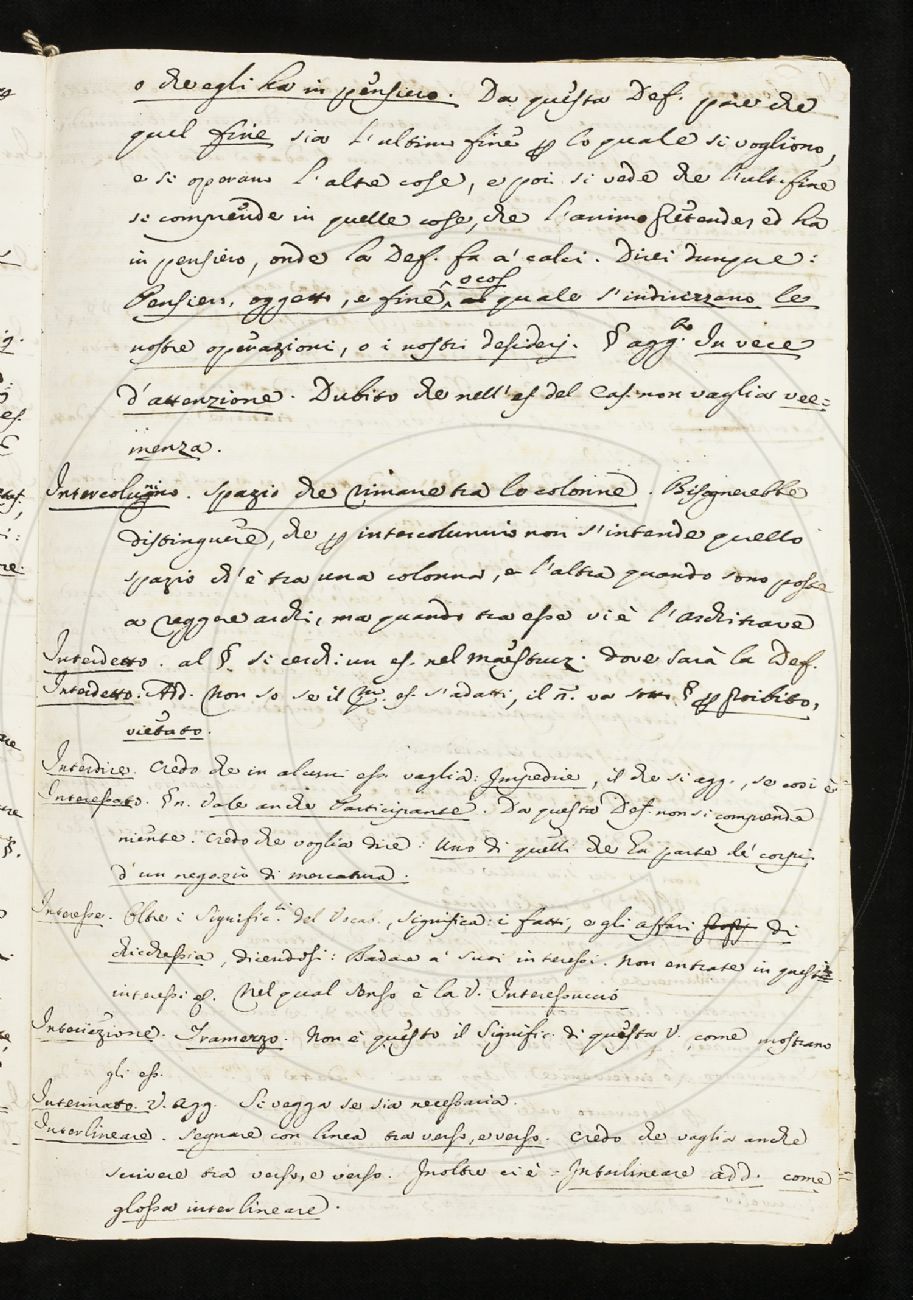 o che egli ha in pensiero. Da questa Def. pare che
quel fine sia l'ultimo fine p lo quale si vogliono,
e si operano l'altre cose, e poi si vede che l'ult. fine
si comprende in quelle cose, che l'animo pretende, ed ha
in pensiero, onde la Def. fa a' calci. Direi dunque:
Pensiero, oggetto, e fine, o cosa al quale s'indirizzano le
nostre operazioni, o i nostri desiderj. § agg. In vece
d'attenzione. Dubito che nell'es. del Cas. non vaglia vee=
menza.
Intercolunnio. Spazio che rimane tra le colonne. Bisognerebbe
distinguere, che p intercolunnio non s'intende quello
spazio ch'è tra una colonna, e l'altra quando sono poste
a reggere archi, ma quando tra esse vi è l'architrave
Interdetto. al §. si cerchi un es. nel Maestruzz. dove sarà la Def.
Interdetto. Add. Non so se il es. s'adatti, il n. va sotto § p proibito,
vietato.
Interdire. Credo che in alcuni ess. vaglia: Impedire, il che si agg., se così è
Interessato. § n. Vale anche Participante. Da questa Def. non si comprende
niente. Credo che voglia dire: Uno di quelli che ha parte ne' corpi
d'un negozio di mercatura.
Interesse. Oltre i signific.ti del Vocab., significa: i fatti, e gli affari di
chicchessia, dicendosi: Badare a' suoi interessi. Non entrate in questi
interessi &. Nel qual senso è la V. Interessuccio
Interiezione. Tramezzo. Non è questo il signific. di questa V. come mostrano
gli ess.
Interinato. V. agg. Si vegga se sia necessaria.
Interlineare. Segnare con linea tra verso, e verso. Credo che vaglia anche
scrivere tra verso, e verso. Inoltre ci è = Interlineare add. come
glossa interlineare.